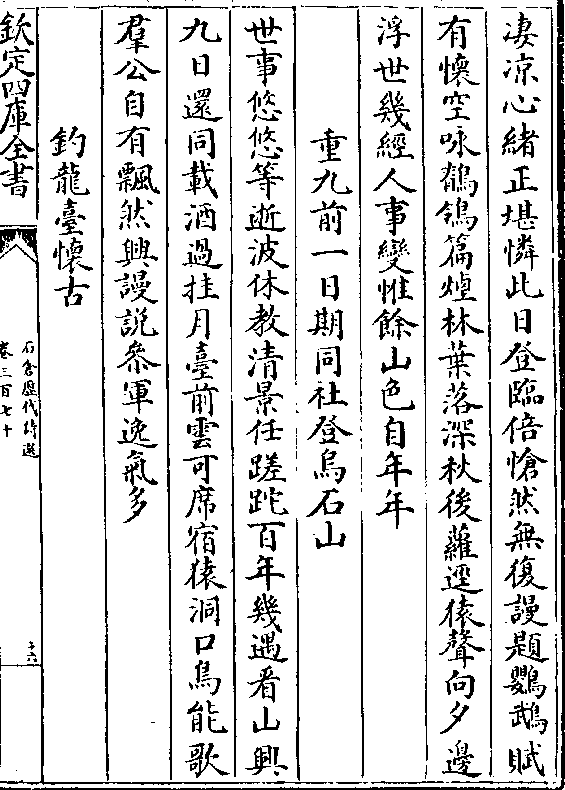 凄凉心緒正堪憐此日登臨倍愴然無復謾題鸚鵡賦
有懷空咏鶺鴒篇煙林葉落深秋後蘿逕猿聲向夕邊
浮世幾經人事變惟餘山色自年年
重九前一日期同社登烏石山
世事悠悠等逝波休教清景任蹉跎百年幾遇看山興
九日還同載酒過挂月臺前雲可席宿猿洞口鳥能歌
羣公自有飄然興謾説叅軍逸氣多
釣龍臺懷古
欽定四庫全書
石倉歴代詩選
卷三百七十
十六